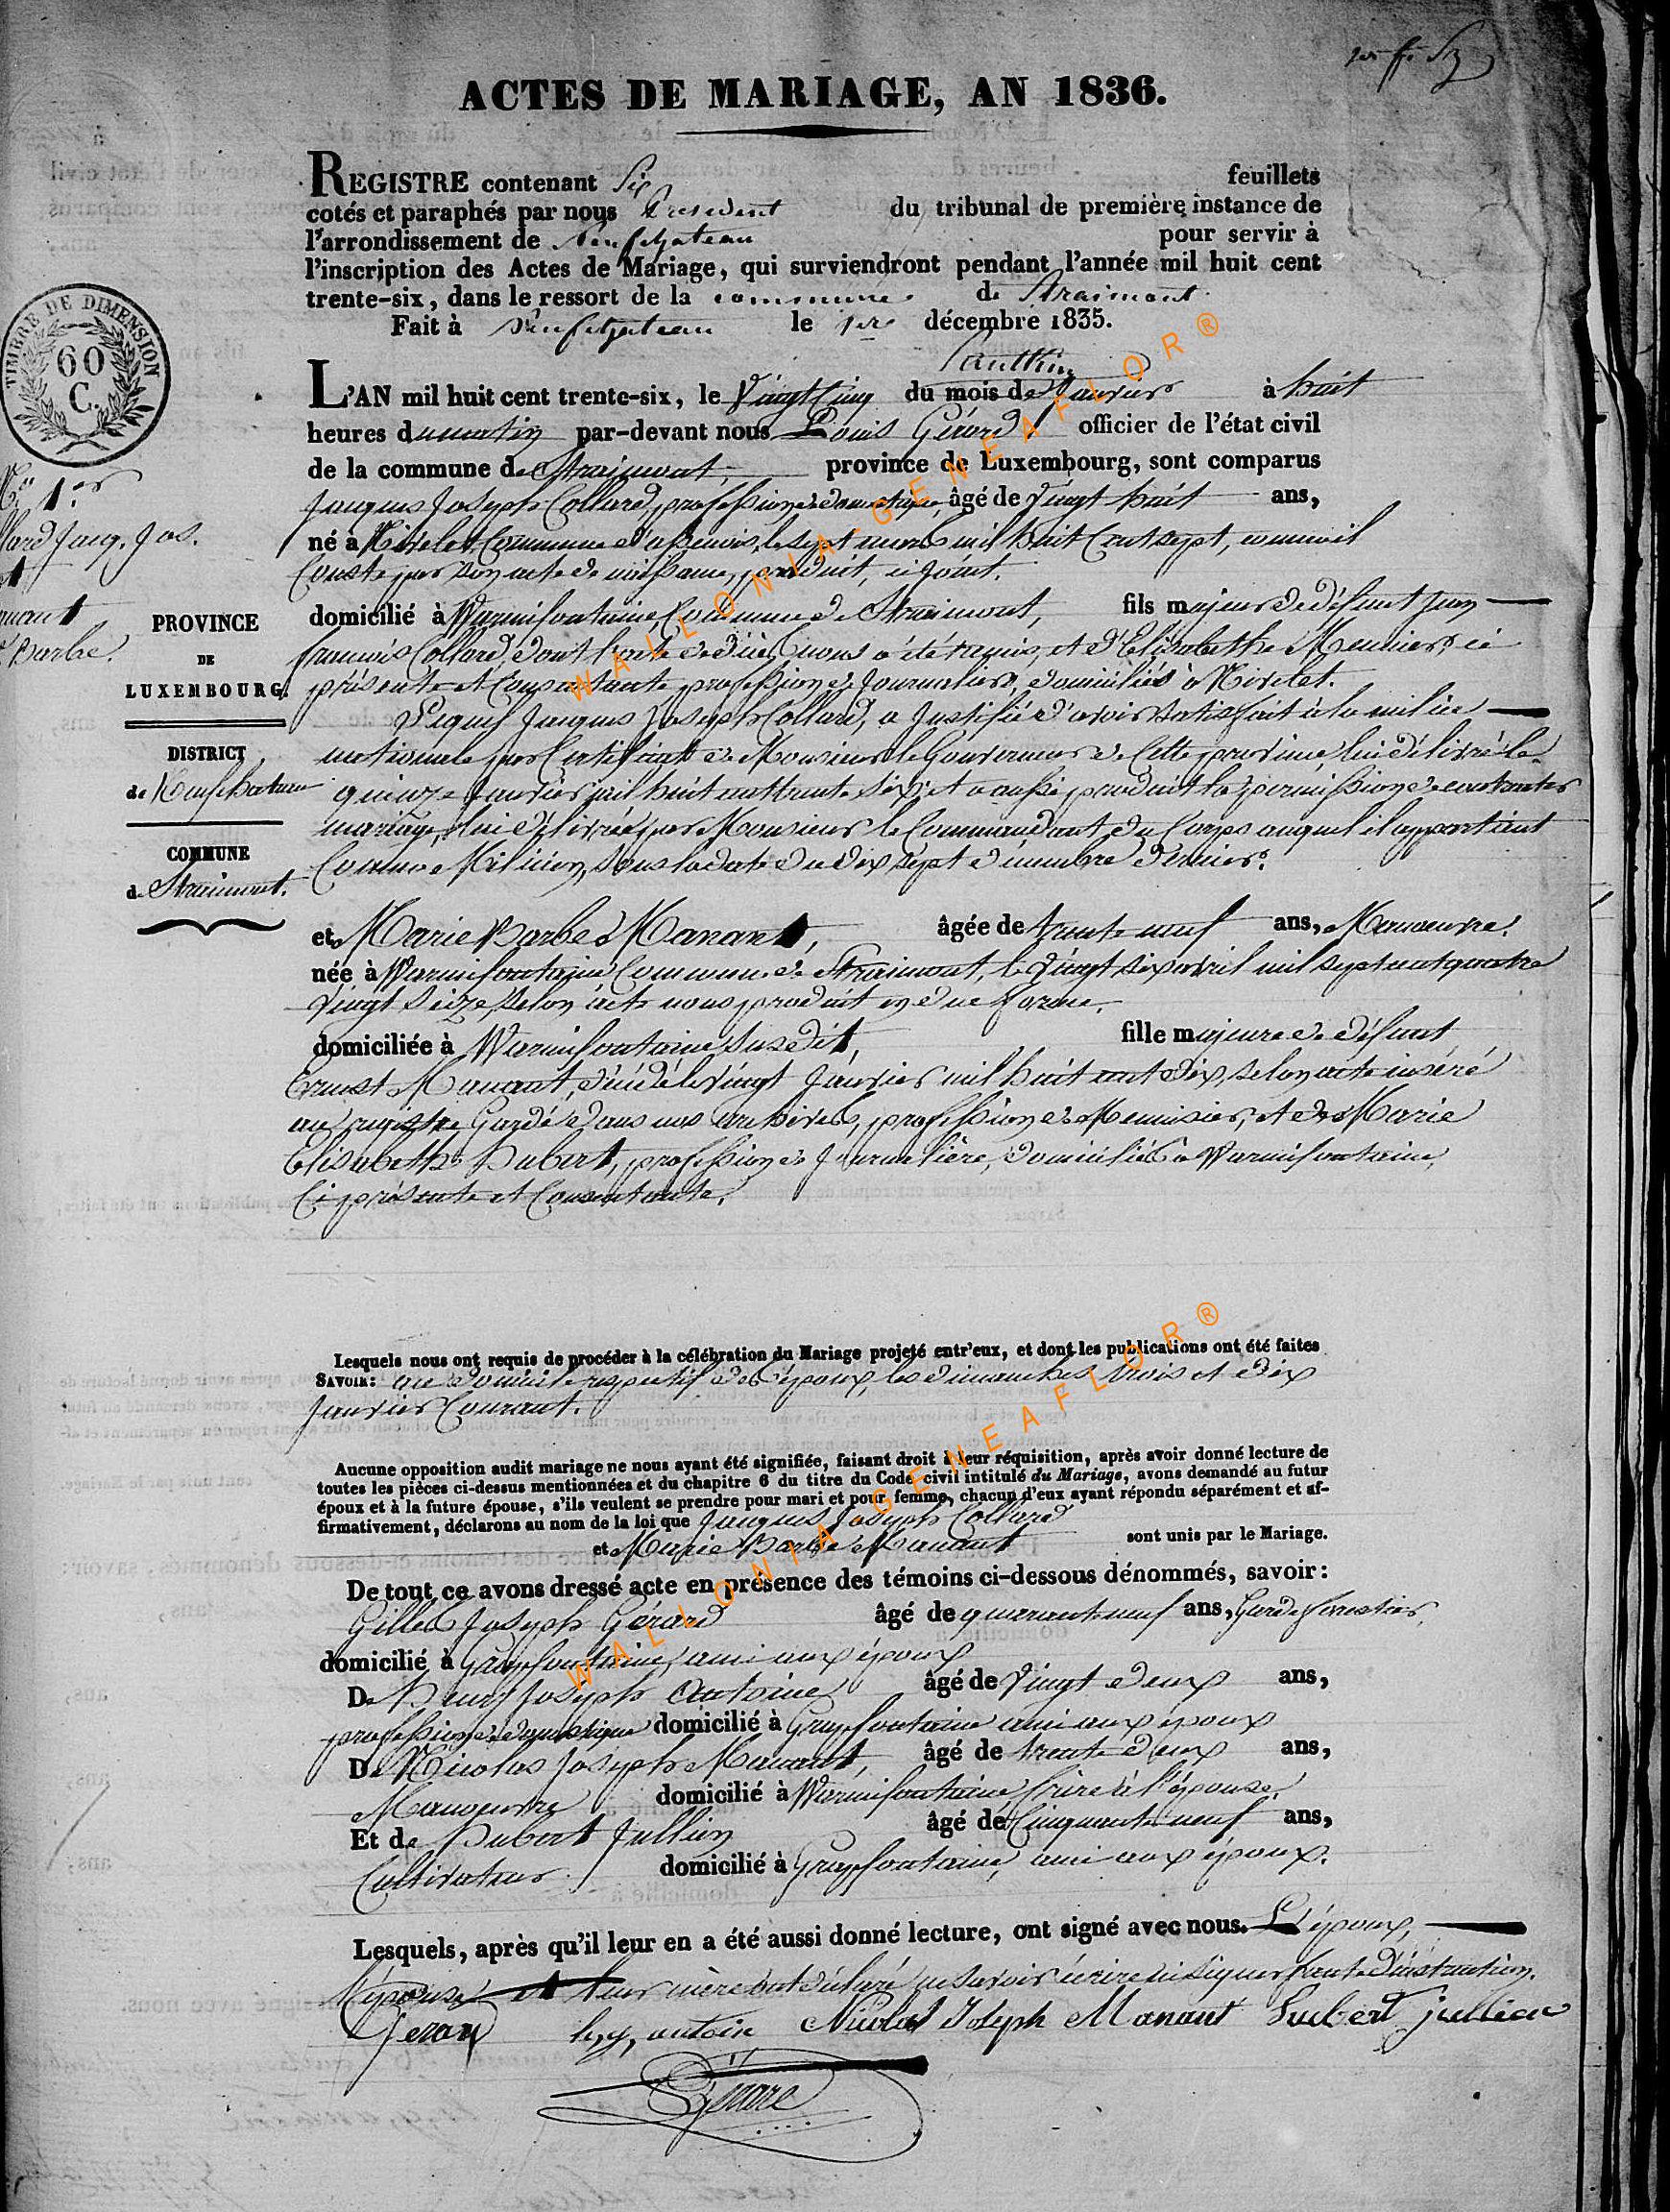 ACTES DE MARIAGE, AN 1836.
REGISTRE contenant Six feuillets
cotés et paraphés par nous President du tribunal de première instance de
l'arrondissement de Neufchateau pour servir à
l'inscription des Actes de Mariage, qui surviendront pendant l'année mil huit cent
trente-six, dans le ressort de la commune de Straimont
Fait à Neufchateau le 1er décembre 1835.
TIMBRE DE DIMENSION
60
C.
L'AN mil huit cent trente-six, le Vingt Cinq du mois de Janvier à huit
heures du matin par-devant nous Louis Gérard officier de l'état civil
de la commune de Straimont, province de Luxembourg, sont comparus
Jacques Joseph Collard, profession de domestique, âgé de Vingt huit ans,
né à Nivelet Commune d'assenois, le sept mil huit Cent sept, comme il
Conste par son acte de naissance, produit, ci joint.
domicilié à Warmifontaine, Commune de Straimont, fils majeur de défunt Jean
francois Collard, dont l'acte de décès nous a été remis, et d'Elisabethe Meunier, ci
présente et Consentante, profession de Journalière, domiciliés à Nivelet.
Lequel Jacques Joseph Collard, a Justifié d'avoir satisfait à la milice
nationale par Certificat de Monsieur le Gouverneur de Cette province, lui délivré le
quinze Janvier mil huit cent trente six, et a aussi produit la permission de contracter
mariage, lui délivrée par Monsieur le Commandant du Corps auquel il appartient
Comme Milicien, sous la date du dix sept décembre dernier.
No 1er
llard Jacq. Jos.
et
anant
Barbe.
PROVINCE
DE
LUXEMBOURG.
DISTRICT
de Neufchateau
COMMUNE
de Straimont.
et Marie Barbe Manant, âgée de trente neuf ans, Manœuvre.
née à Warmifontaine Commune de Straimont, le Vingt six avril mil sept cent quatre
Vingt Seize, selon acte nous produit en due forme.
domiciliée à Warmifontaine susdit, fille majeure de défunt
Ernest Manant, décédé le Vingt Janvier mil huit cent dix, selon acte inséré
au registre Gardé dans nos archives, profession de Menuisier, et de Marie
Elisabethe Hubert, profession de Journalière, domiciliés à Warmifontaine,
Ci présente et Consentante.
Lesquels nous ont requis de procéder à la célébration du Mariage projeté entr'eux, et dont les publications ont été faites
SAVOIR: au domicile respectif des époux, les dimanches trois et dix
Janvier Courant.
Aucune opposition audit mariage ne nous ayant été signifiée, faisant droit à leur réquisition, après avoir donné lecture de
toutes les pièces ci-dessus mentionnées et du chapitre 6 du titre du Code civil intitulé du Mariage, avons demandé au futur
époux et à la future épouse, s'ils veulent se prendre pour mari et pour femme, chacun d'eux ayant répondu séparément et af-
firmativement, déclarons au nom de la loi que Jacques Joseph Collard
et Marie Barbe Manant sont unis par le Mariage.
De tout ce avons dressé acte en présence des témoins ci-dessous dénommés, savoir:
Gilles Joseph Gérard âgé de quarante neuf ans, Garde forestier,
domicilié à Grapfontaine, ami aux époux
De Henry Joseph Antoine âgé de Vingt deux ans,
profession de domestique domicilié à Grapfontaine ami aux époux
De Nicolas Joseph Manant, âgé de trente deux ans,
Manœuvre domicilié à Warmifontaine, frère à l'épouse.
Et de Hubert Jullien âgé de Cinquante neuf ans,
Cultivateur domicilié à Grapfontaine, ami aux époux.
Lesquels, après qu'il leur en a été aussi donné lecture, ont signé avec nous. L'époux,
l'épouse et leur mère ont déclaré ne savoir écrire ni signer faute d'instruction.
Gerard h,y, antoin Nicolas Joseph Manant hubert jullien
LGérard
WALLONIA-GENEAFLOR®
WALLONIA-GENEAFLOR®